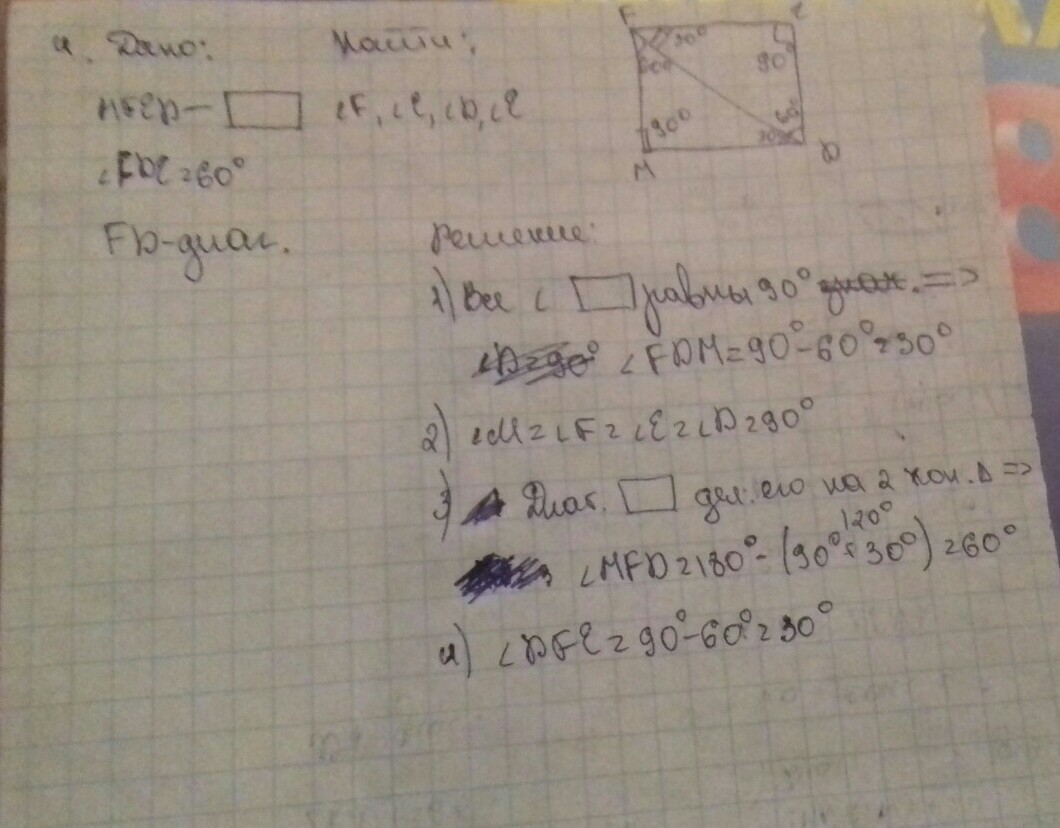 4. Дано: Найти:
MFED — ▭ ∠F, ∠E, ∠D, ∠E
∠FDE = 60°
FD - диаг.
F E
30°
60° 90°
90° 60°
30°
M D
Решение:
1) Все ∠ ▭ равны 90° =>
∠FDM = 90° - 60° = 30°
2) ∠M = ∠F = ∠E = ∠D = 90°
3) Диаг. ▭ дел. его на 2 Δ =>
120°
∠MFD = 180° - (90° + 30°) = 60°
4) ∠DFE = 90° - 60° = 30°